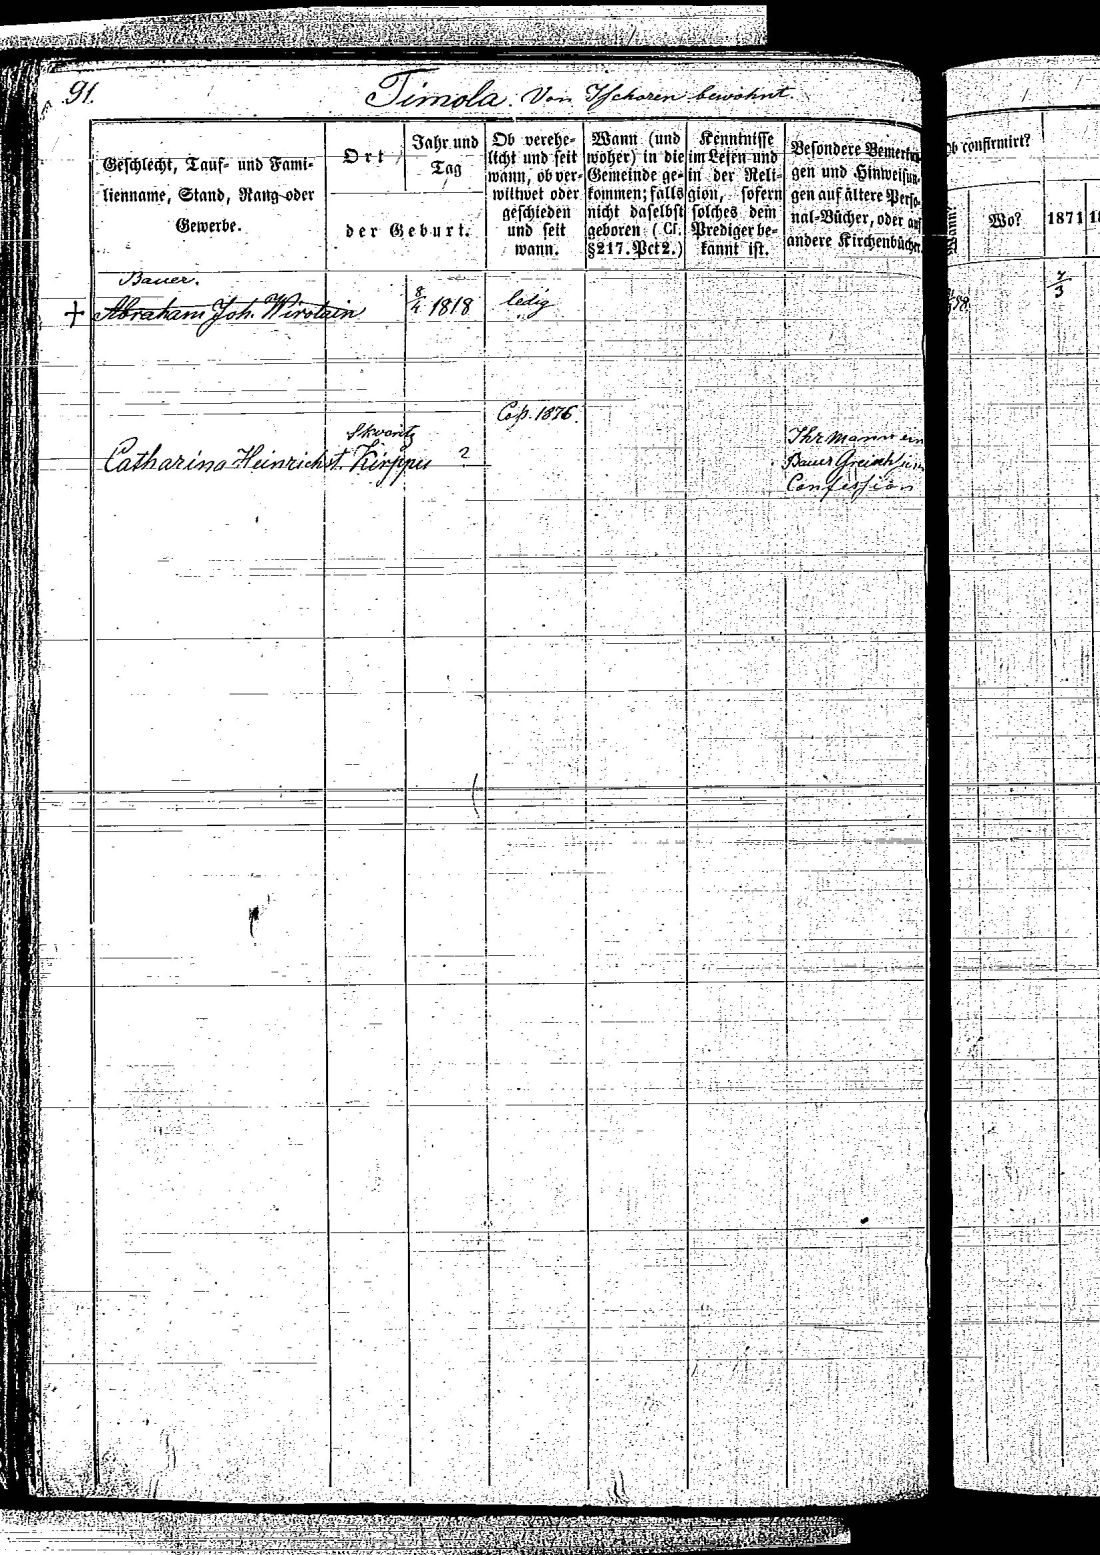 91.
Timola. Von Ischoren bewohnt.
Geschlecht, Tauf- und Fami-
lienname, Stand, Rang oder
Gewerbe.
Ort
Jahr und
Tag
der Geburt.
Ob verehe-
licht und seit
wann, ob ver-
wittwet oder
geschieden
und seit
wann.
Wann (und
woher) in die
Gemeinde ge-
kommen; falls
nicht daselbst
geboren (Cf.
§217. Pct 2.)
Kenntnisse
im Lesen und
in der Reli-
gion, sofern
solches dem
Prediger be-
kannt ist.
Besondere Bemerkun-
gen und Hinweisun-
gen auf ältere Perso-
nal-Bücher, oder auf
andere Kirchenbücher.
Ob confirmirt?
Wann?
Wo?
1871
Bauer.
Abraham Joh. Wirolain
8/4 1818
ledig
7/3
Cop. 1876.
Skworitz
Catharina Heinrichst. Kirppu
?
Ihr Mann ein
Bauer Griech
Confession